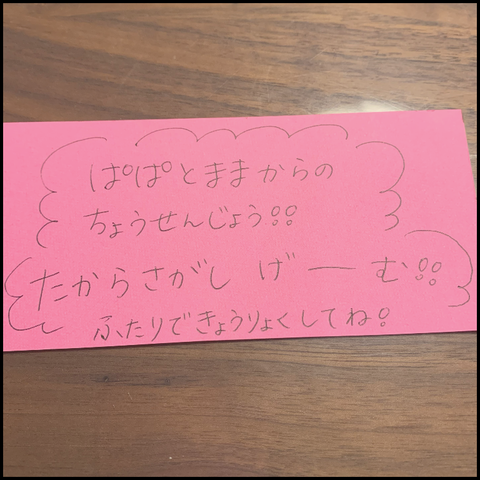 ぱぱとままからの
ちょうせんじょう!!
たからさがし げーむ!!
ふたりできょうりょくしてね!